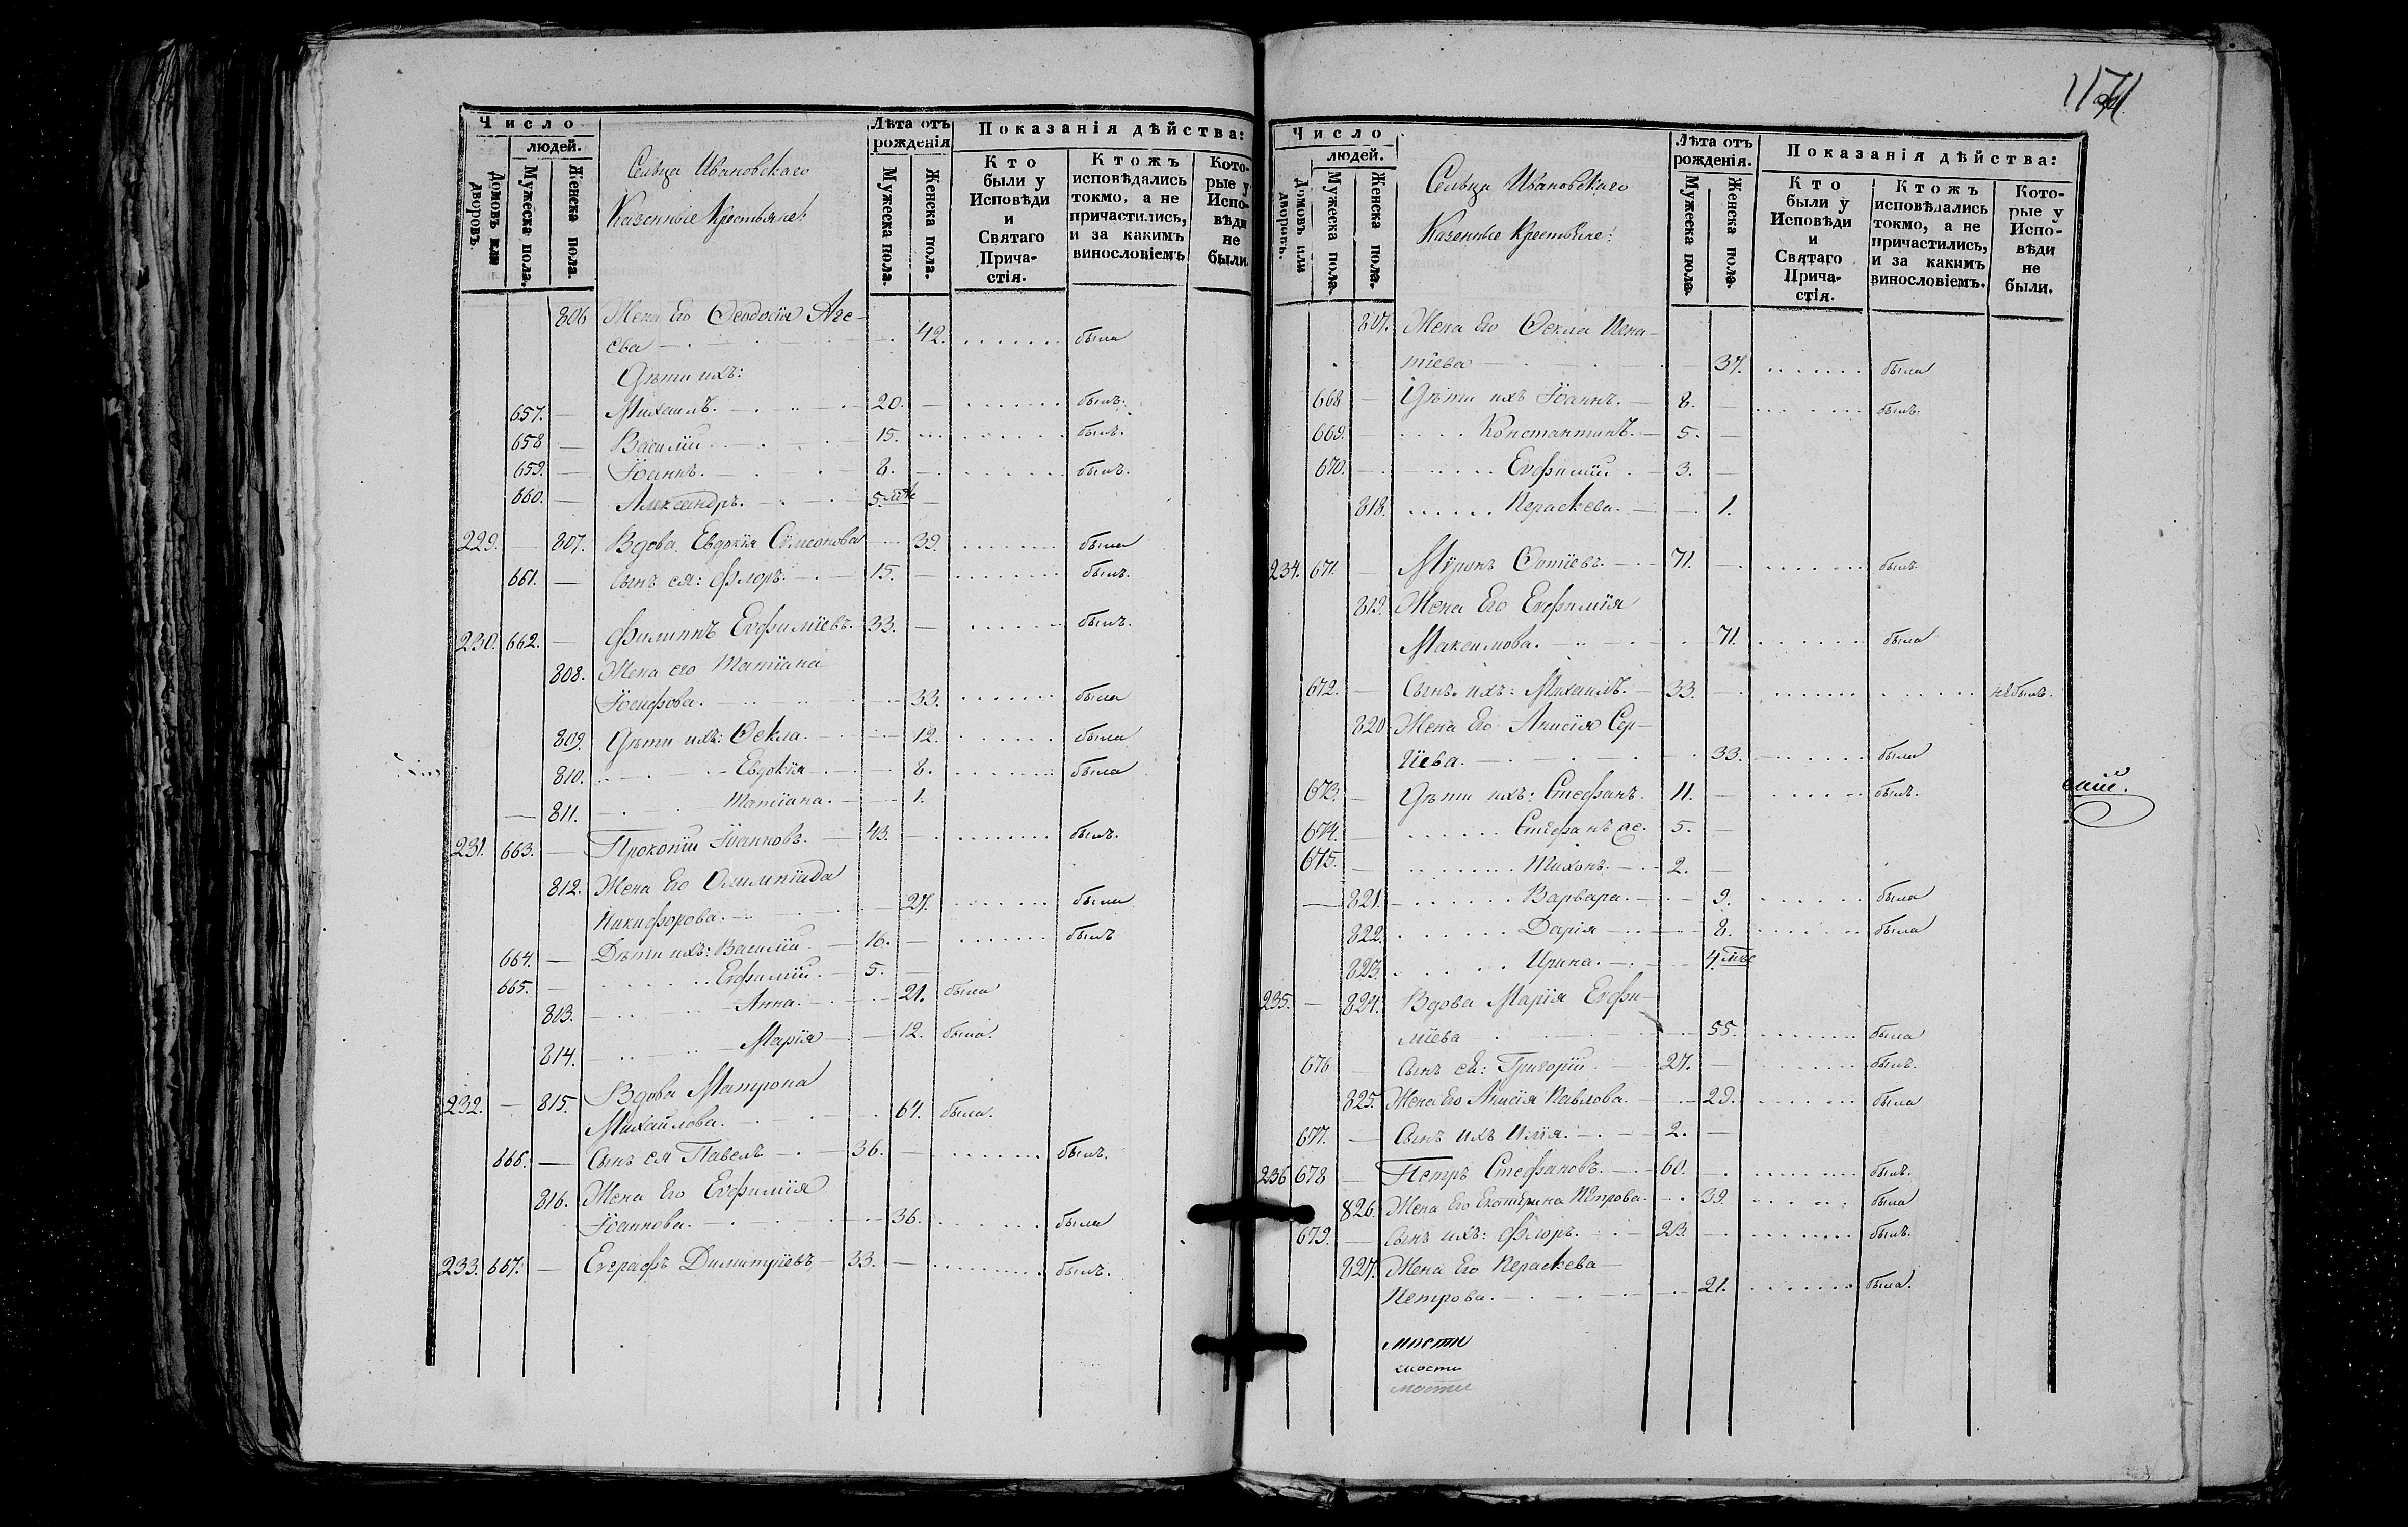 Число
людей.
Домовъ или дворовъ.
Мужеска пола.
Женска пола.
Сельца Ивановскаго
Казенные Крестьяне:
Лѣта отъ
рожденія
Мужеска пола.
Женска пола.
Показанія дѣйства:
Кто
были у
Исповѣди
и
Святаго
Прича-
стія.
Ктожъ
исповѣдались
токмо, а не
причастились,
и за какимъ
винословіемъ
Кото-
рые у
Испо-
вѣди
не
были.
806 Жена Его Ѳеодосія Аге-
ева 42. была
Дѣти ихъ:
657. Михаилъ. 20. былъ.
658 Василій 15. былъ.
659. Іоаннъ. 8. былъ.
660. Александръ. 5.
229. 807. Вдова Евдокія Симеонова 39. была
661. Сынъ ея: Флоръ. 15. былъ.
230. 662. Филиппъ Евфиміевъ. 33. былъ.
808. Жена его Татіана
Іосифова. 33. была
809. Дѣти ихъ: Ѳекла. 12. была
810. Евдокія 8. была
811. Татіана. 1.
231. 663. Прокопій Іоанновъ. 43. былъ.
812. Жена Его Олимпіада
Никифорова. 27. была
664. Дѣти ихъ: Василій 16. былъ
665. Евфимій. 5.
813. Анна. 21. была
814. Марія 12. была.
232. 815. Вдова Матрона
Михайлова. 64. была.
666. Сынъ ея Павелъ 36. былъ.
816. Жена Его Евфимія
Іоаннова. 36. была
233. 667. Евграфъ Димитріевъ 33. былъ.
Число
людей.
Домовъ или дворовъ.
Мужеска пола.
Женска пола.
Сельца Ивановскаго
Казенные Крестьяне:
Лѣта отъ
рожденія.
Мужеска пола.
Женска пола.
Показанія дѣйства:
Кто
были у
Исповѣди
и
Святаго
Прича-
стія.
Ктожъ
исповѣдались
токмо, а не
причастились,
и за какимъ
винословіемъ.
Кото-
рые у
Испо-
вѣди
не
были.
817. Жена Его Ѳекла Игна-
тіева 37. была
668 Дѣти ихъ Іоаннъ. 8. былъ.
669. Константинъ. 5.
670. Евфимій 3.
818. Параскева. 1.
234. 671. Миронъ Фотіевъ. 71. былъ
819. Жена Его Евфимія
Максимова. 71. была
672. Сынъ ихъ: Михаилъ. 33. не былъ.
820 Жена Его Анисія Сер-
гіева. 33. была
673. Дѣти ихъ: Стефанъ. 11. былъ.
674. Стефанъ 5.
675. Тихонъ. 2.
821. Варвара. 9. была
822. Дарія 8. была
823. Ирина. 4.
235. 824. Вдова Марія Евфи-
міева 55. была
676 Сынъ ея: Григорій 27. былъ.
825. Жена Его Анисія Павлова. 29. была
677. Сынъ ихъ Илія. 2.
236 678 Петръ Стефановъ. 60. былъ.
826. Жена Его Екатерина Петрова. 39. была
679. Сынъ ихъ: Флоръ. 23. былъ.
827. Жена Его Параскева
Петрова. 21. была.